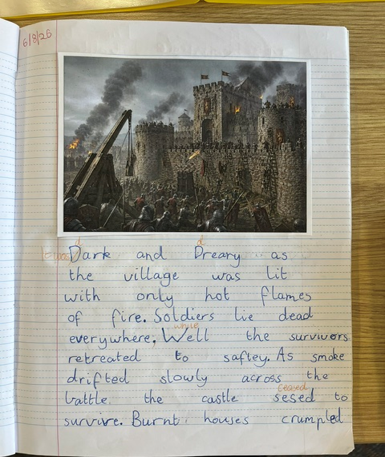 6/8/26
d d
Dark and Dreary as
the village was lit
with only hot flames
of fire. Soldiers lie dead
while
everywhere. Well the survivors
retreated to saftey. As smoke
drifted slowly across the
ceased
battle the castle sesed to
survive. Burnt houses crumpled